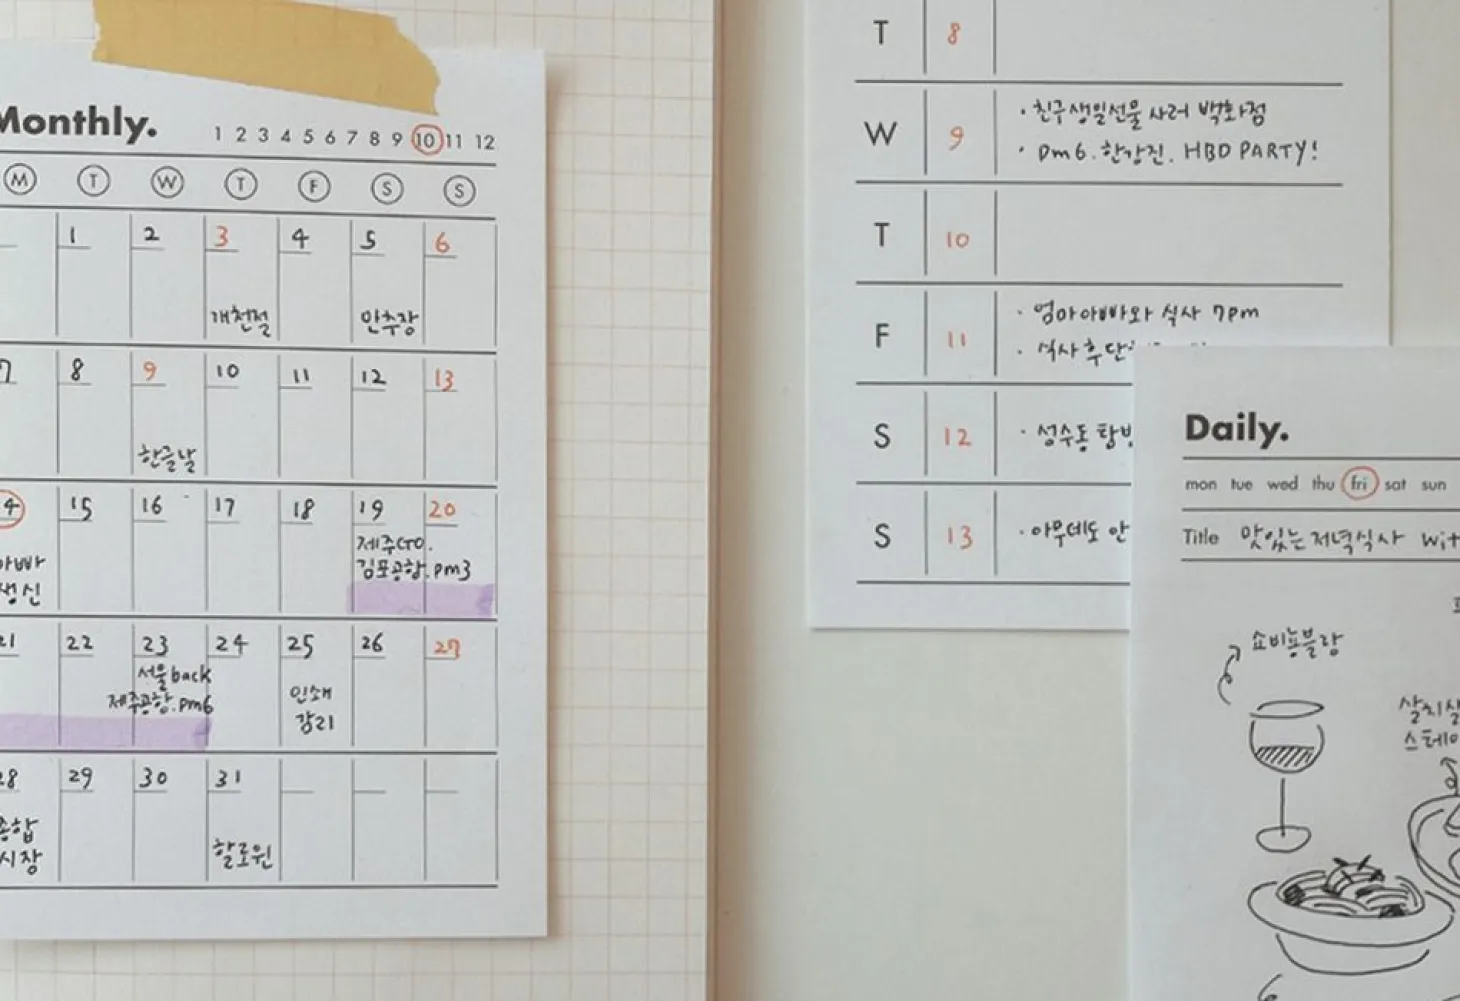 Monthly.
1 2 3 4 5 6 7 8 9 10 11 12
M T W T F S S
1 2 3 4 5 6
개천절
안추장
7 8 9 10 11 12 13
한글날
15 16 17 18 19 20
제주GO.
김포공항.pm3
생신
21 22 23 24 25 26 27
서울back
제주공항.pm6
인쇄
감리
28 29 30 31
종합
시장
할로윈
T 8
W 9
· 친구생일선물 사러 백화점
· pm6. 한강진. HBD PARTY!
T 10
F 11
· 엄마아빠와 식사 7pm
· 식사 후
S 12
· 성수동
S 13
· 아무데도 안
Daily.
mon tue wed thu fri sat sun
Title 맛있는 저녁식사
쇼비뇽블랑